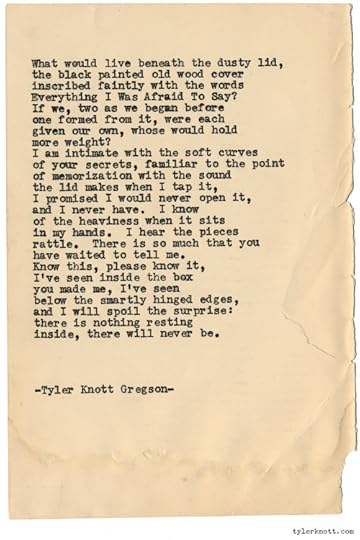 What would live beneath the dusty lid,
the black painted old wood cover
inscribed faintly with the words
Everything I Was Afraid To Say?
If we, two as we began before
one formed from it, were each
given our own, whose would hold
more weight?
I am intimate with the soft curves
of your secrets, familiar to the point
of memorization with the sound
the lid makes when I tap it,
I promised I would never open it,
and I never have.  I know
of the heaviness when it sits
in my hands.  I hear the pieces
rattle.  There is so much that you
have waited to tell me.
Know this, please know it,
I've seen inside the box
you made me, I've seen
below the smartly hinged edges,
and I will spoil the surprise:
there is nothing resting
inside, there will never be.
-Tyler Knott Gregson-
tylerknott.com